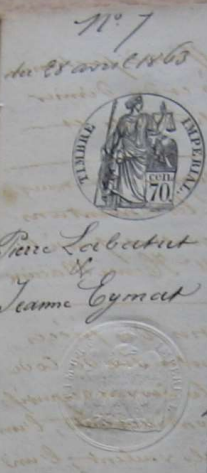 N° 7
du 28 avril 1863
TIMBRE IMPERIAL
70 cen
Pierre Labatut
&
Jeanne Eymat